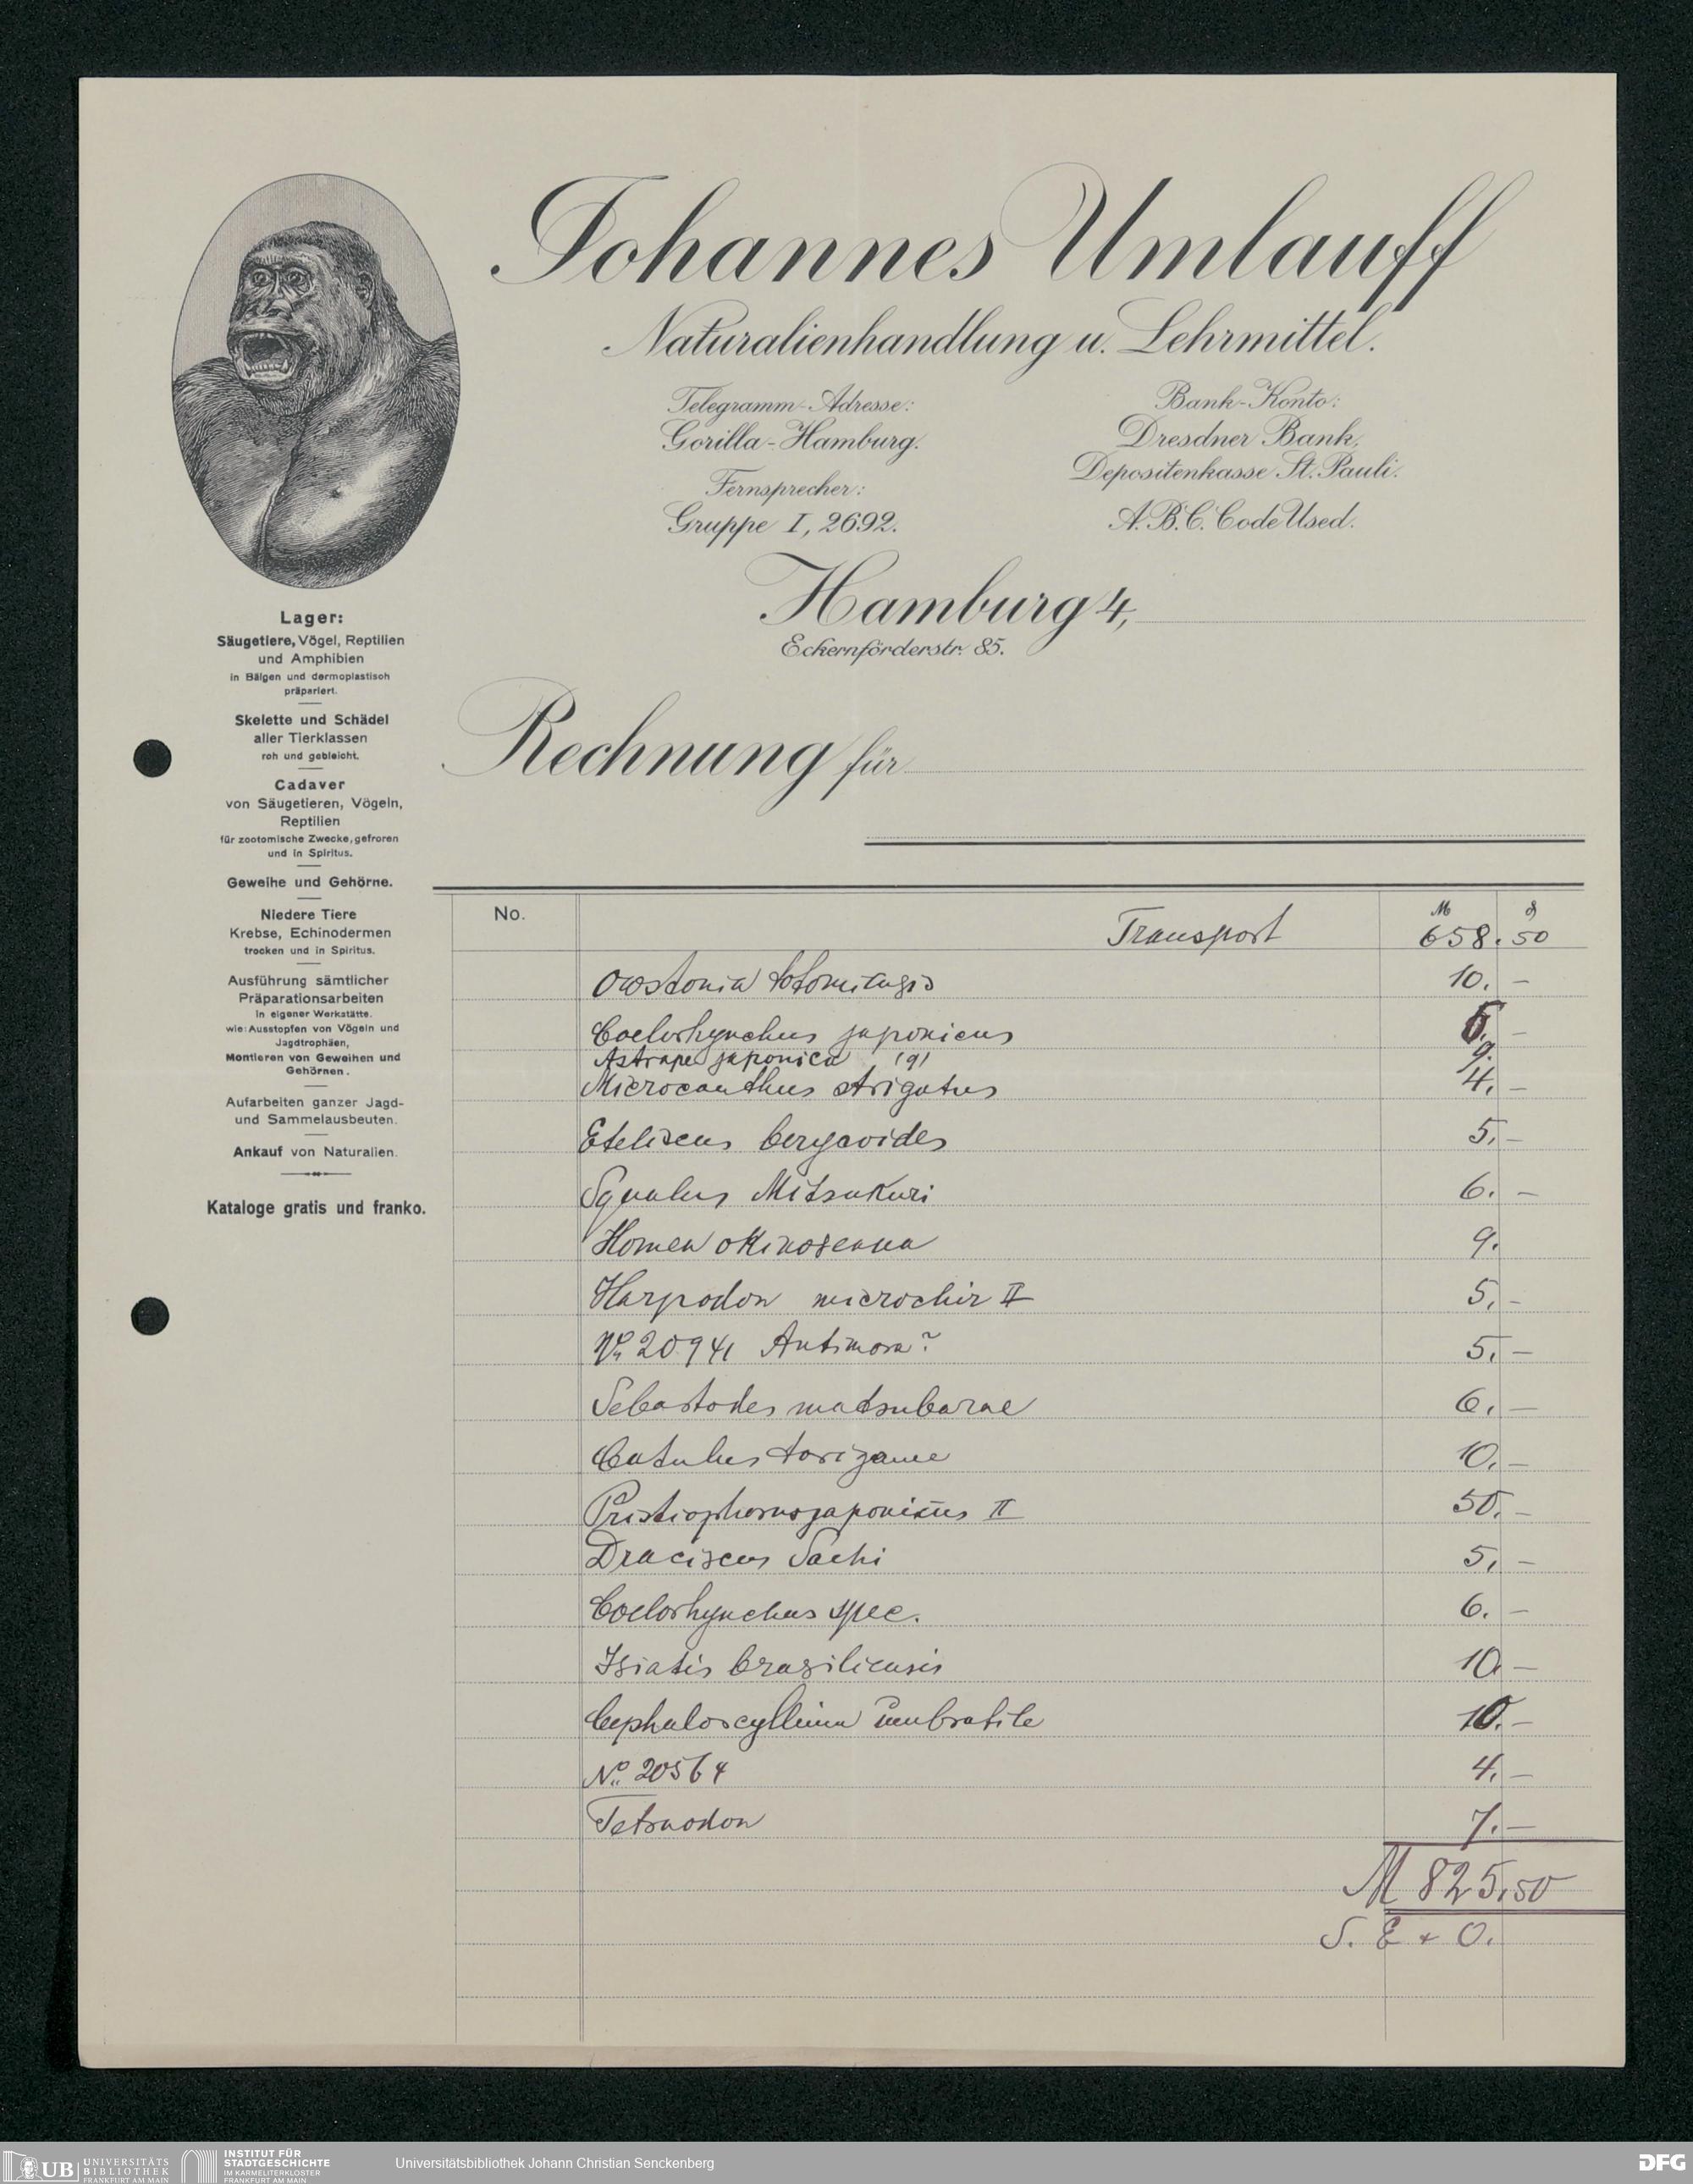 Johannes Umlauff
Naturalienhandlung u. Lehrmittel.
Telegramm-Adresse:
Gorilla-Hamburg.
Fernsprecher:
Gruppe I, 2692.
Bank-Konto:
Dresdner Bank,
Depositenkasse St. Pauli.
A.B.C. Code Used.
Hamburg 4,
Eckernförderstr. 85.
Rechnung für
Lager:
Säugetiere, Vögel, Reptilien
und Amphibien
in Bälgen und dermoplastisch
präpariert.
Skelette und Schädel
aller Tierklassen
roh und gebleicht.
Cadaver
von Säugetieren, Vögeln,
Reptilien
für zootomische Zwecke, gefroren
und in Spiritus.
Geweihe und Gehörne.
Niedere Tiere
Krebse, Echinodermen
trocken und in Spiritus.
Ausführung sämtlicher
Präparationsarbeiten
in eigener Werkstätte.
wie: Ausstopfen von Vögeln und
Jagdtrophäen,
Montieren von Geweihen und
Gehörnen.
Aufarbeiten ganzer Jagd-
und Sammelausbeuten.
Ankauf von Naturalien.
Kataloge gratis und franko.
No. M ₰
Transport 658. 50
10. –
Coelorhynchus japonicus 6. –
Astrape japonica (9) 9.
Microcanthus strigatus 4. –
Eteliscus berycoides 5. –
Squalus Mitsukuri 6. –
9.
Harpodon microchir II 5. –
No 20941 Antimora? 5. –
Sebastodes matsubarae 6. –
Catulus torizame 10. –
Pristiophorus japonicus II 50. –
Draciscus Sachi 5. –
Coelorhynchus spec. 6. –
Isiatis brasiliensis 10 –
Cephaloscyllium umbratile 10. –
No. 20564 4. –
Tetraodon 7. –
M 825,50
S. E & O.
UB UNIVERSITÄTS
BIBLIOTHEK
FRANKFURT AM MAIN
INSTITUT FÜR
STADTGESCHICHTE
IM KARMELITERKLOSTER
FRANKFURT AM MAIN
Universitätsbibliothek Johann Christian Senckenberg
DFG